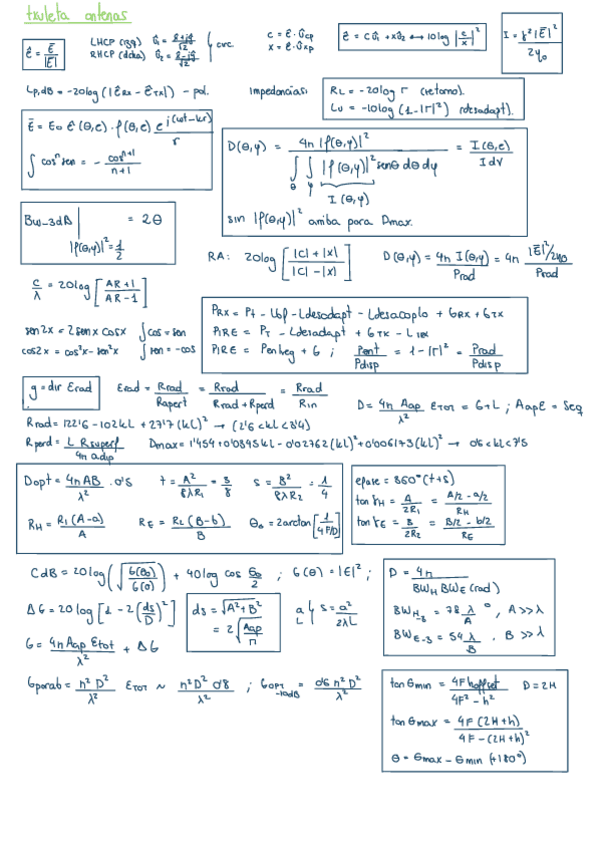 txuleta antenas
ê = Ē/|Ē|
LHCP (izq) û₁ = (x̂+jŷ)/√2
RHCP (dcha) û₂ = (x̂-jŷ)/√2
circ.
c = ê·ûcp
x = ê·ûxp
ê = cû₁ + xû₂ ↔ 10log|c/x|²
I = r²|Ē|²/2η₀
Lp,dB = -20log(|êRx - êTx|) - pol.
Impedancias:
RL = -20log r (retorno).
Lu = -10log(1-|r|²) (desadapt).
Ē = E₀ ê(θ,φ)·f(θ,φ) e^j(wt-kr)/r
∫cosⁿsen = - cosⁿ⁺¹/n+1
D(θ,φ) = 4π|f(θ,φ)|² / ∫θ∫φ |f(θ,φ)|² senθ dθ dφ = I(θ,φ)/I dV
I(θ,φ)
sin |f(θ,φ)|² arriba para Dmax.
BW_3dB | |f(θ,φ)|²=1/2 = 2θ
RA: 20log[(|C|+|x|)/(|C|-|x|)]
D(θ,φ) = 4π I(θ,φ)/Prad = 4π (|Ē|²/2η₀)/Prad
c/λ = 20log[(AR+1)/(AR-1)]
PRX = Pt - Lbf - Ldesadapt - Ldesacoplo + GRX + GTX
PIRE = PT - Ldesadapt + GTX - L
PIRE = Pentreg + G ; Pent/Pdisp = 1-|r|² = Prad/Pdisp
sen2x = 2senx cosx ∫cos = sen
cos2x = cos²x - sen²x ∫sen = -cos
g = dir Erad
Erad = Rrad/Rapert = Rrad/(Rrad+Rperd) = Rrad/Rin
D = 4π Aap/λ² Etot = G+L ; AapE = Seq
Rrad = 122'6 - 102kL + 27'17(kL)² → (2'6<kL<8'4)
Rperd = L Rsuperf/4π a dip
Dmax = 1'454 + 0'0895kL - 0'02762(kL)² + 0'006173(kL)³ → 0'6<kL<7'5
Dopt = 4πAB/λ² · 0'5 t = A²/8λR₁ = 3/8 s = B²/8λR₂ = 1/4
RH = R₁(A-a)/A RE = R₂(B-b)/B θ₀ = 2arctan[1/(4F/D)]
efase = 360°(t+s)
tan γH = A/2R₁ = (A/2 - a/2)/RH
tan γE = B/2R₂ = (B/2 - b/2)/RE
CdB = 20log(√(G(θ₀)/G(0))) + 40log cos θ₀/2 ; G(θ) = |E|² ;
D = 4π/(BWH BWE (rad))
BWH-3 = 78 λ/A °, A>>λ
BWE-3 = 54 λ/B · B>>λ
ΔG = 20log[1 - 2(ds/D)²]
ds = √(A²+B²) = 2√(Aap/π)
a L S = a²/2λL
G = 4π Aap Etot/λ² + ΔG
Gparab = π²D²/λ² Etot ~ π²D² 0'8/λ² ; Gopt-10dB = 0'6π²D²/λ²
tan θmin = 4F hoffset/(4F² - h²) D = 2H
tan θmax = 4F(2H+h)/(4F-(2H+h)²)
θ = θmax - θmin (+180°)